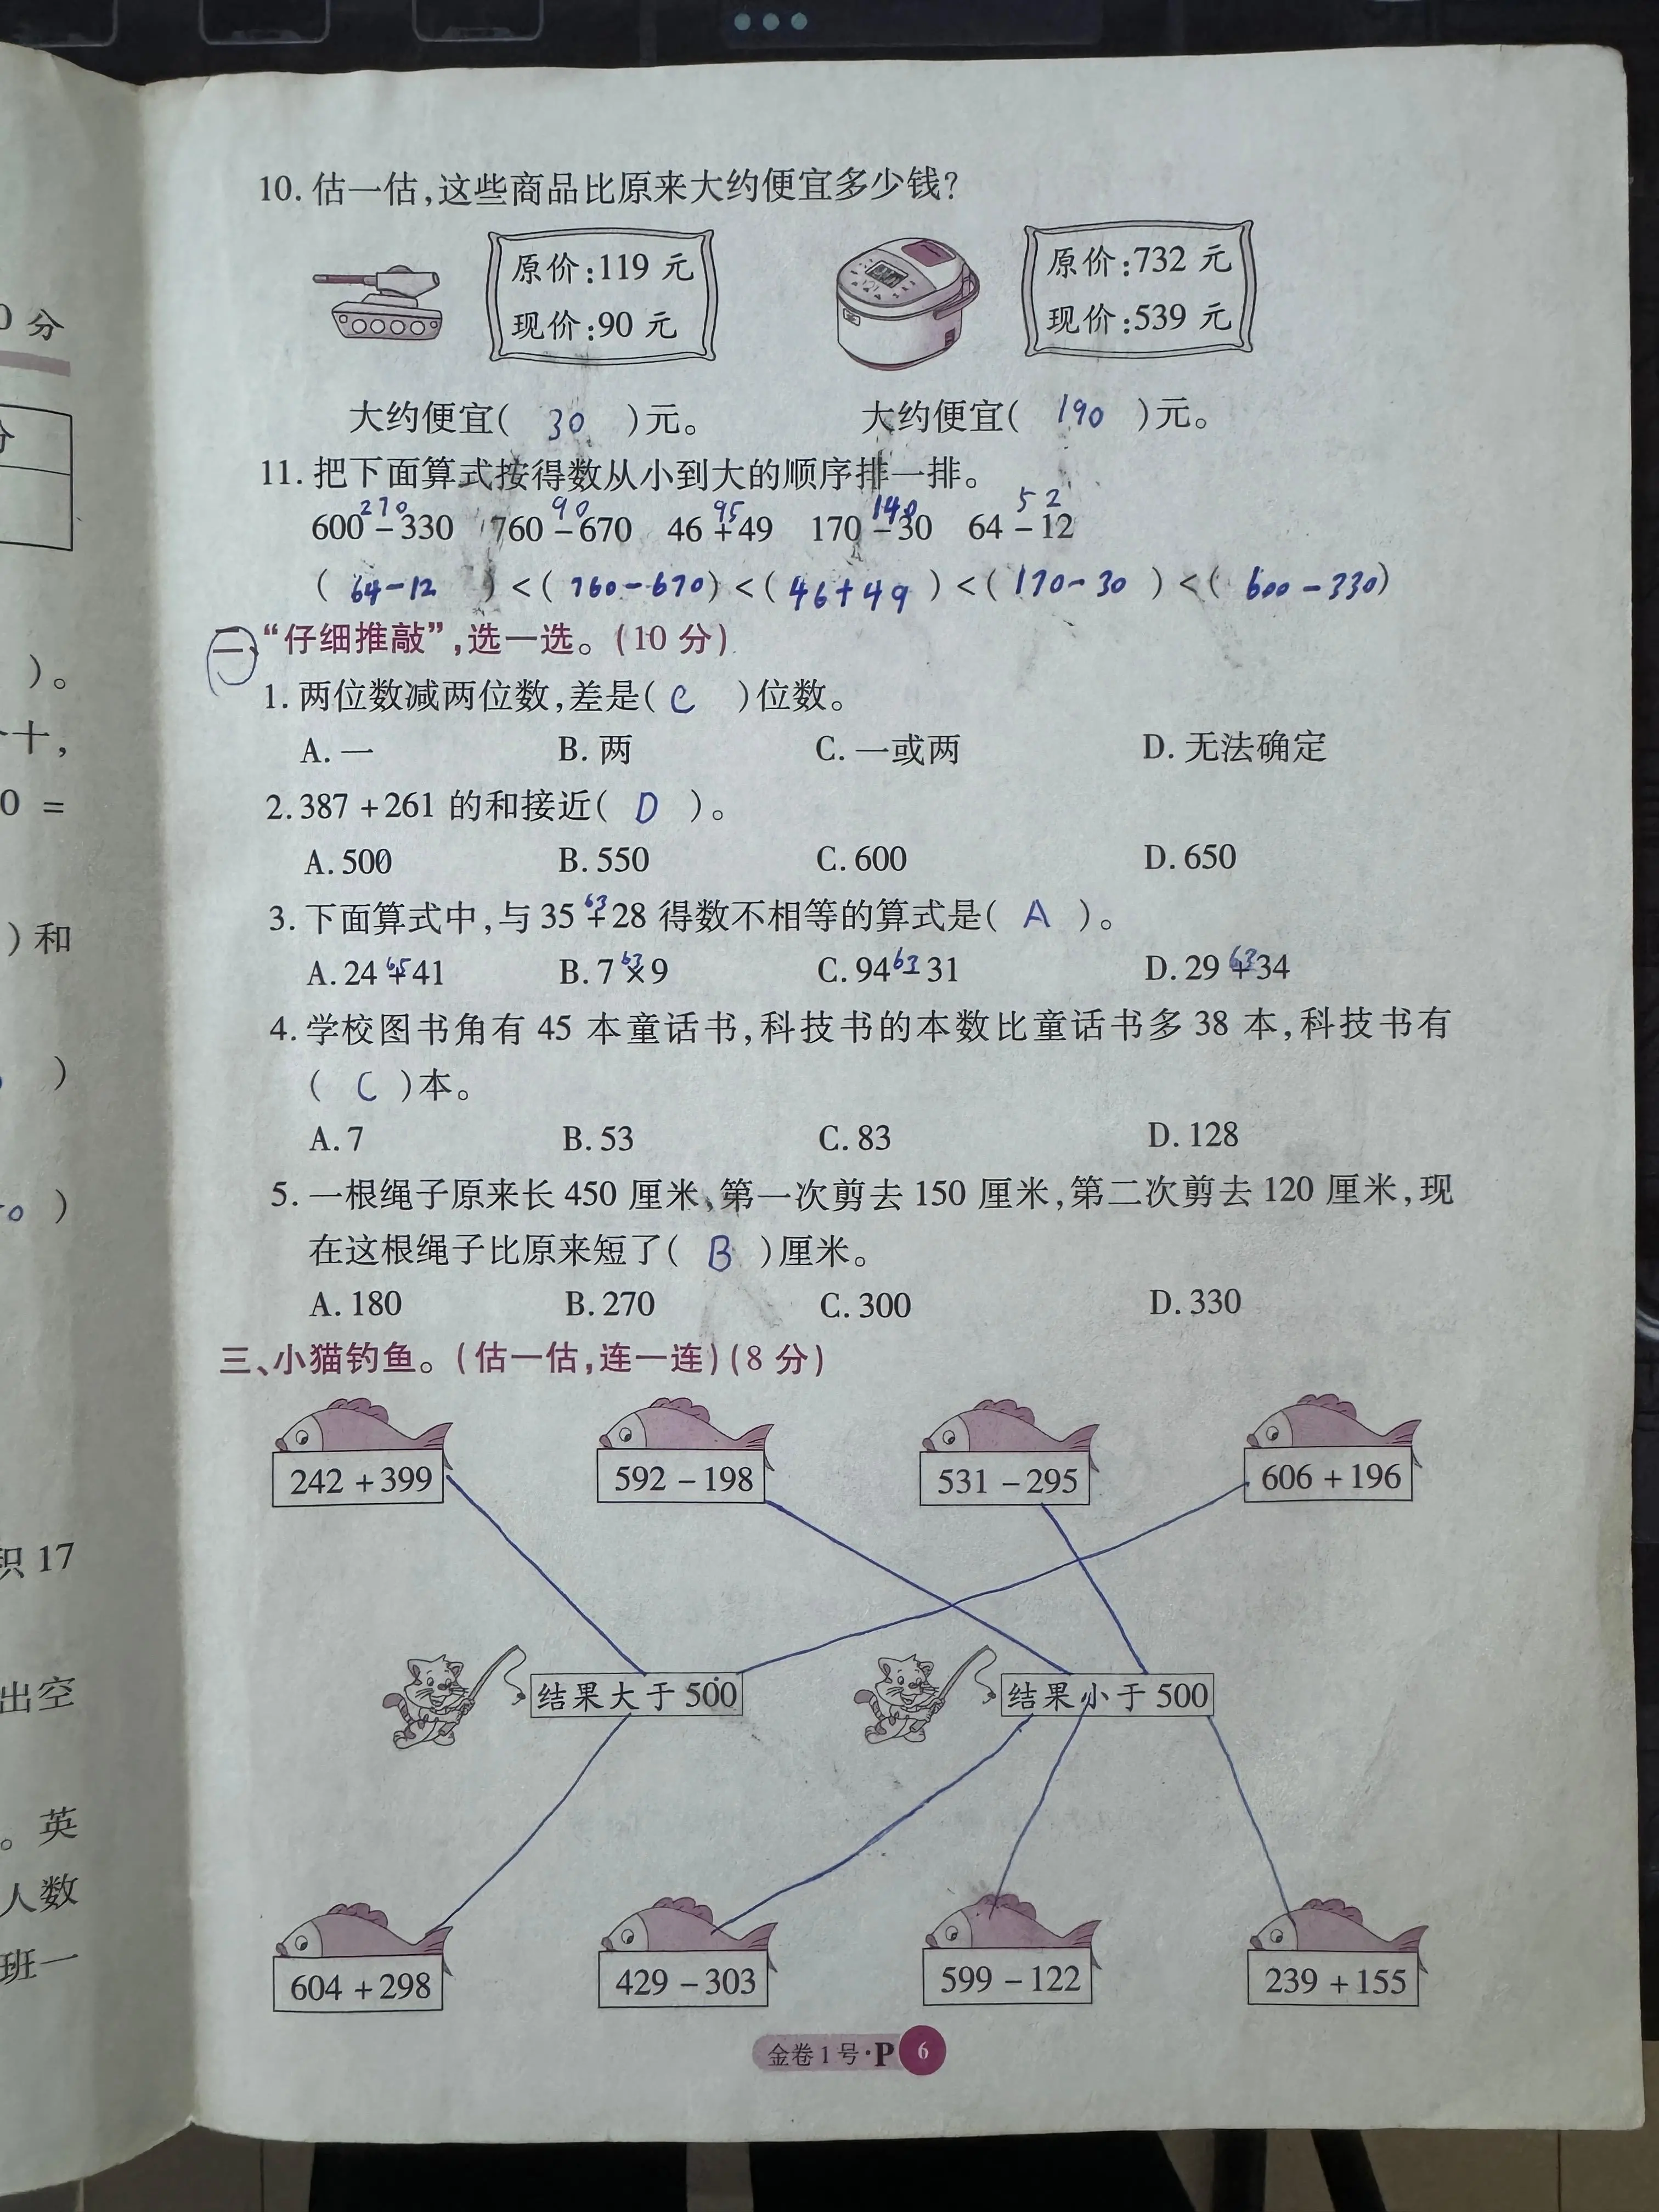 10. 估一估,这些商品比原来大约便宜多少钱?
原价:119 元
现价:90 元
原价:732 元
现价:539 元
大约便宜( 30 )元。 大约便宜( 190 )元。
11. 把下面算式按得数从小到大的顺序排一排。
270 90 95 140 52
600 - 330 760 - 670 46 + 49 170 - 30 64 - 12
( 64-12 ) < ( 760-670 ) < ( 46+49 ) < ( 170-30 ) < ( 600-330 )
二、“仔细推敲”,选一选。(10 分)
1. 两位数减两位数,差是( C )位数。
A. 一 B. 两 C. 一或两 D. 无法确定
2. 387 + 261 的和接近( D )。
A. 500 B. 550 C. 600 D. 650
63
3. 下面算式中,与 35 + 28 得数不相等的算式是( A )。
65 63 63 63
A. 24 + 41 B. 7 × 9 C. 94 - 31 D. 29 + 34
4. 学校图书角有 45 本童话书,科技书的本数比童话书多 38 本,科技书有
( C )本。
A. 7 B. 53 C. 83 D. 128
5. 一根绳子原来长 450 厘米,第一次剪去 150 厘米,第二次剪去 120 厘米,现
在这根绳子比原来短了( B )厘米。
A. 180 B. 270 C. 300 D. 330
三、小猫钓鱼。(估一估,连一连)(8 分)
242 + 399 592 - 198 531 - 295 606 + 196
结果大于 500 结果小于 500
604 + 298 429 - 303 599 - 122 239 + 155
金卷 1 号·P 6
0 分
)。
十,
0 =
) 和
)
0 )
积 17
出空
。英
人数
班一